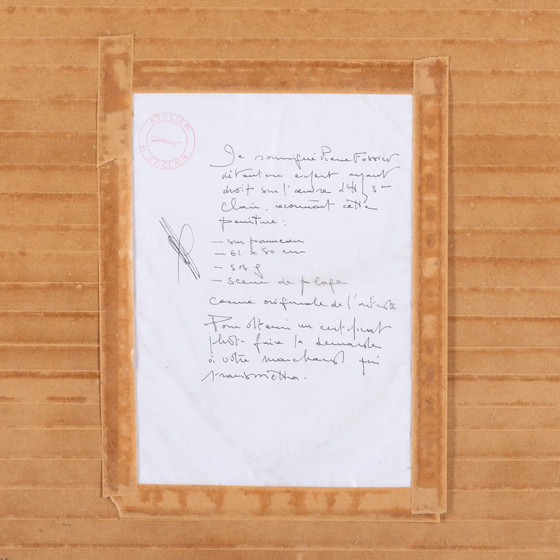 ATELIER
H. ST-CLAIR
Je soussigné Pierre
détenteur expert ayant
droit sur l'œuvre d'H St
Clair, reconnait cette
peinture:
— sur panneau
— 61 x 50 cm
— sbg
— scene de plage
comme originale de l'artiste
Pour obtenir un certificat
photo faire la demande
à votre marchand qui
transmettra.